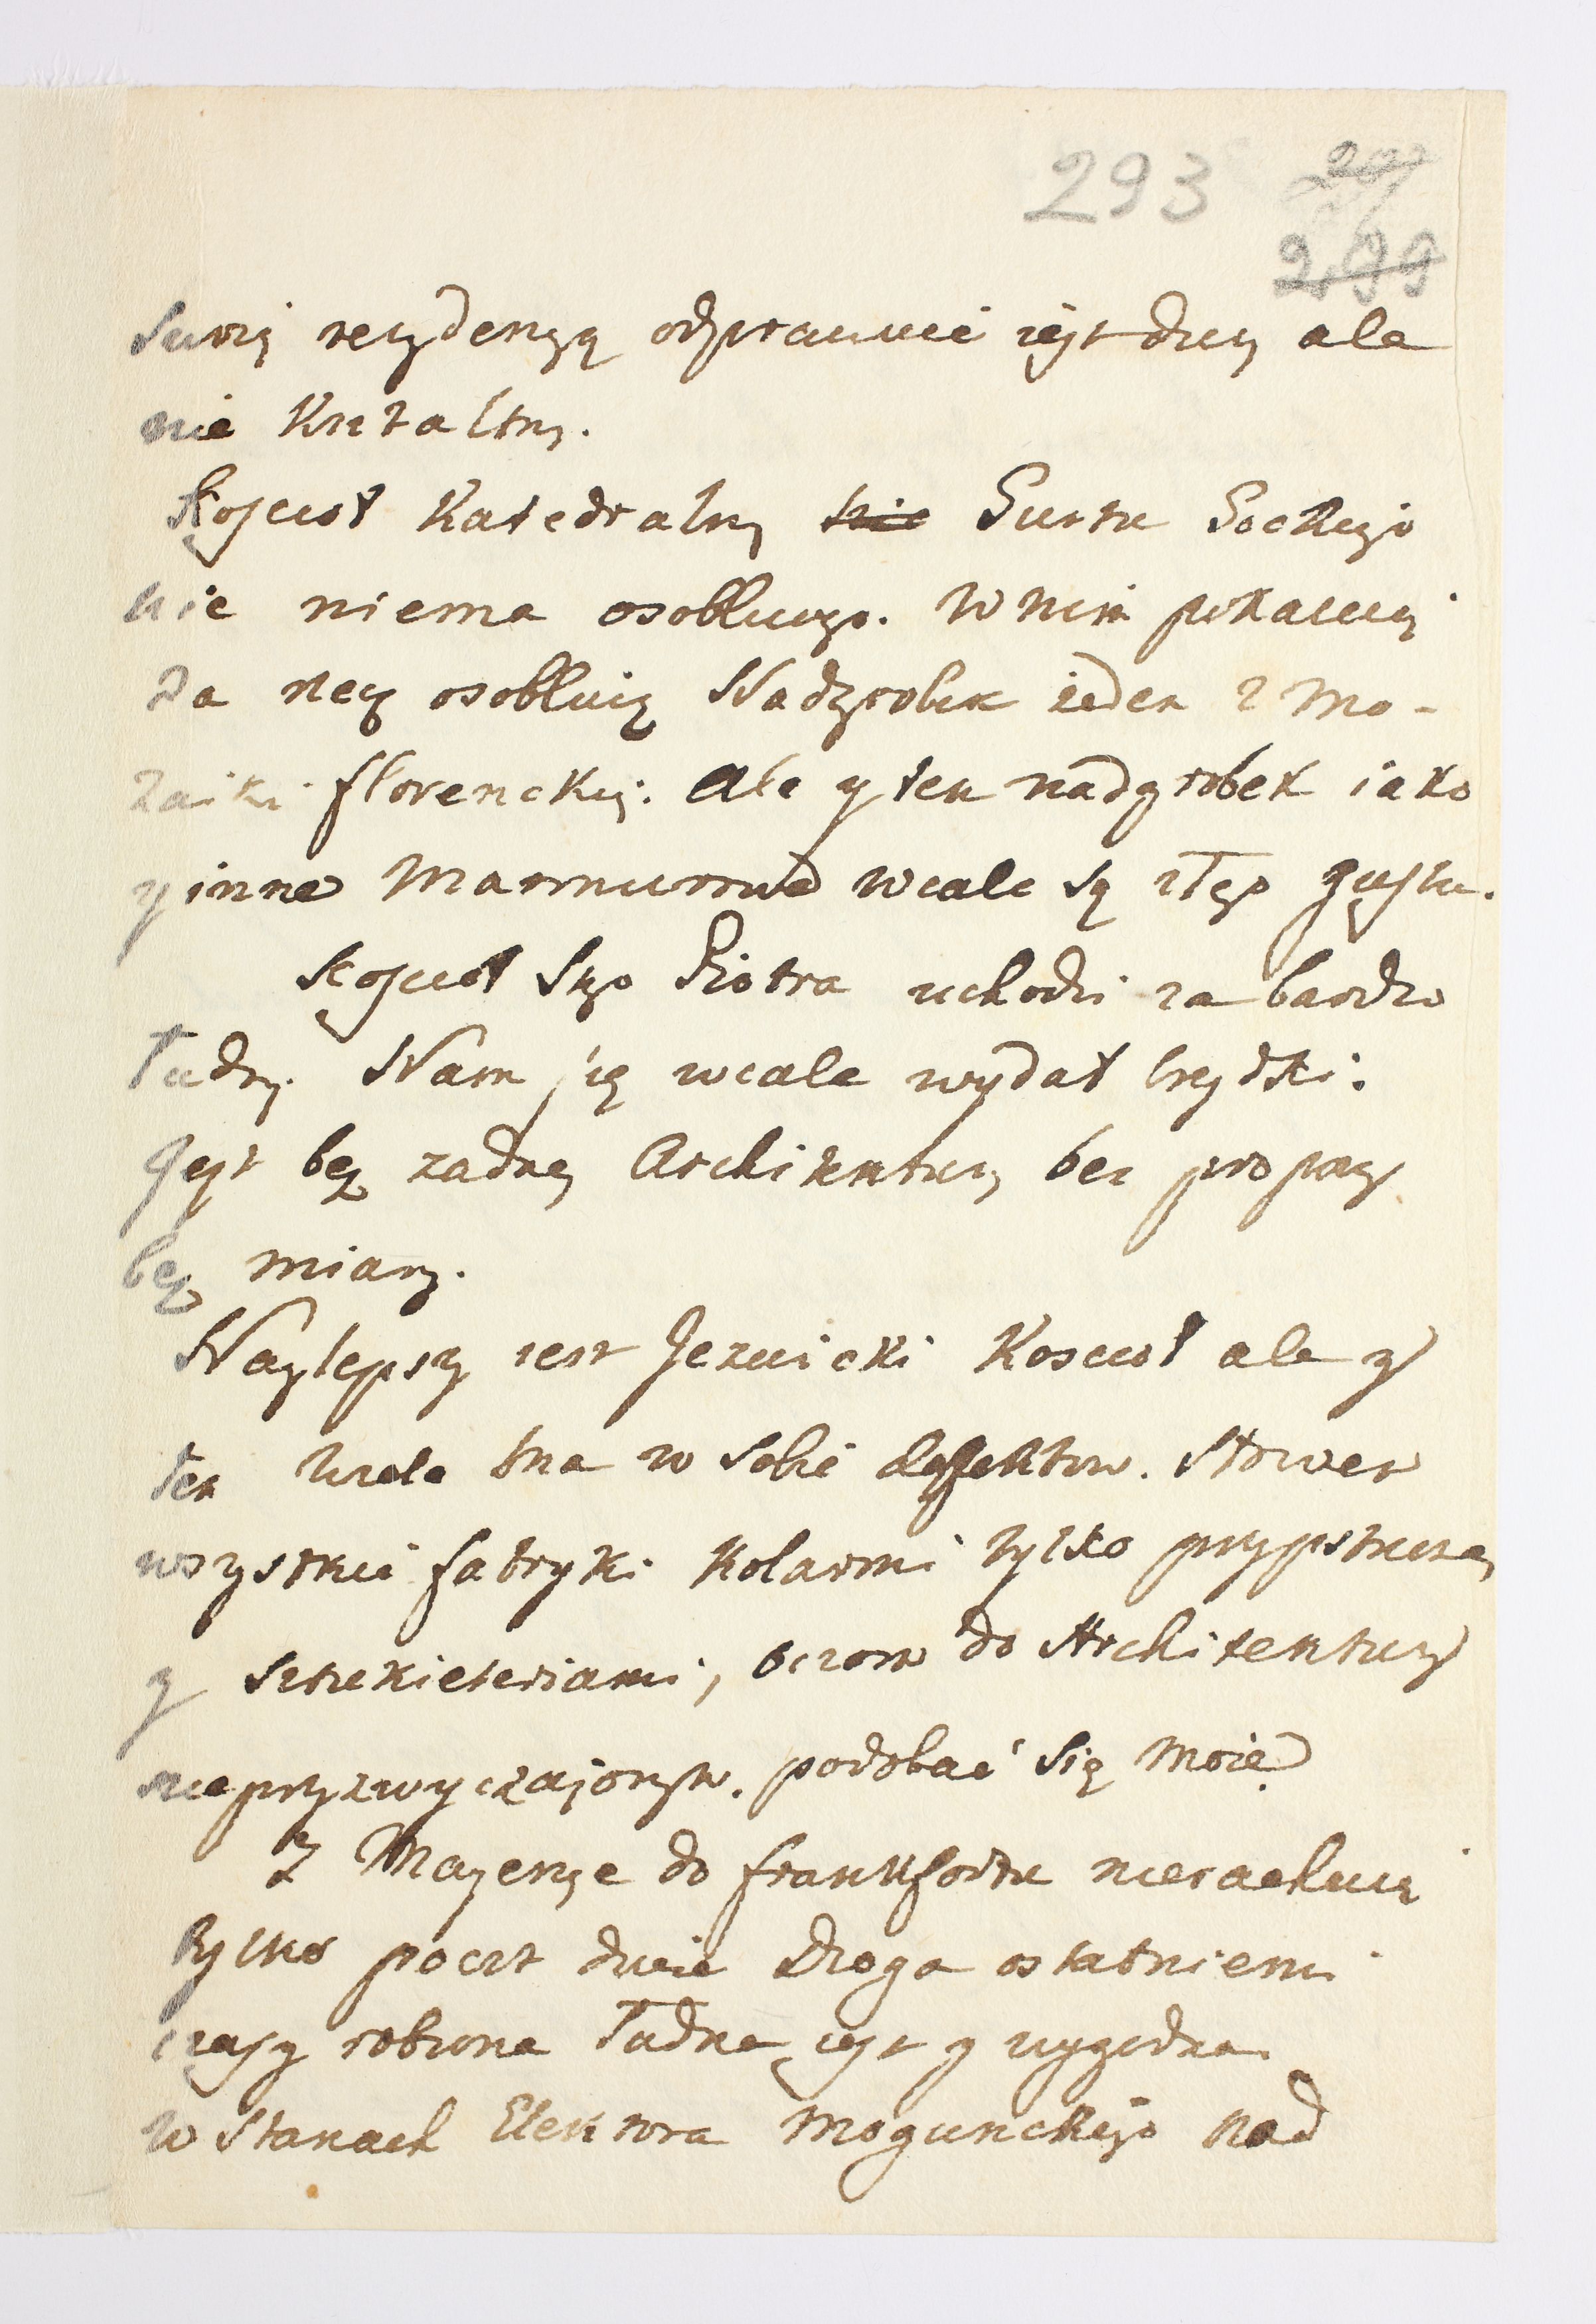 293 207
299
swoią rezydencyą odprawuie iest duży ale
nie kształtny.
Koscioł Katedralny nic Gustu Gockiego
nic niema osobliwego. W nim pokazuią
za rzecz osobliwą Nadgrobek ieden z Mo-
zaiki florenckiej. Ale y ten nadgrobek iako
y inne Marmurowe wcale są złego gustu.
Koscioł Sgo Piotra uchodzi za bardzo
ładny. Nam się wcale wydał brzydki.
Jest bez zadney Architektury bez propocyi
bez miary.
Naylepszy iest Jezuicki Koscioł ale y
ten wiele ma w sobie deffektow. Słowem
wszystkie fabryki kolorami tylko przypstrzone
y sztukieteriami, oczom do Architektury
nieprzyzwyczajonym. podobać się moie
Z Mayencye do frankfortu nierachuią
tylko poczt dwie Droga ostatniemi
czasy robiona ładna iest y wygodna.
W Stanach Elektora Mogunckiego nad